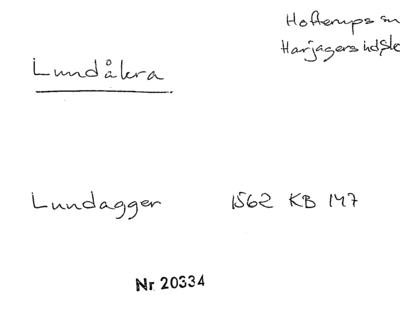 Hofterups
Harjagers
Lundåkra
Lundagger 1562 KB 147
Nr 20334